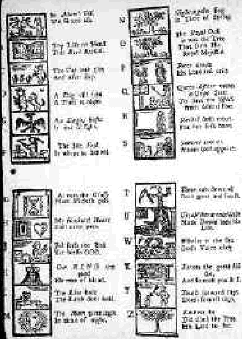 In Adam's Fall
We Sinned all.
Thy Life to Mend
This Book Attend.
The Cat doth play
And after slay.
A Dog will bite
A Thief at night.
An Eagles flight
Is out of sight.
The Idle Fool
Is whipt at School.
N
Nightingales sing
In Time of Spring.
O
The Royal Oak
it was the Tree
That sav'd His
Royal Majestie.
P
Peter denies
His Lord and cries
Q
Queen Esther comes
in Royal State
To Save the JEWS
from dismal Fate
R
doth mourn
For her first born.
S
Samuel anoints
Whom God appoints.
As runs the Glass
Mans life doth
My Book and Heart
Shall never part.
Job feels the Rod
Yet blesses GOD.
Our KING the
good
No man of blood.
The Lion bold
The Lamb doth hold.
The Moon gives light
In time of night.
T
Time cuts down all
Both great and small.
U
beauteous Wife
Made David seek his
Life.
W
Whales in the Sea
God's Voice obey.
X
Xerxes the great did
die,
And so must you & I.
Y
Youth forward slips
Death soonest nips.
Z
Zacheus he
Did climb the Tree
His Lord to see,